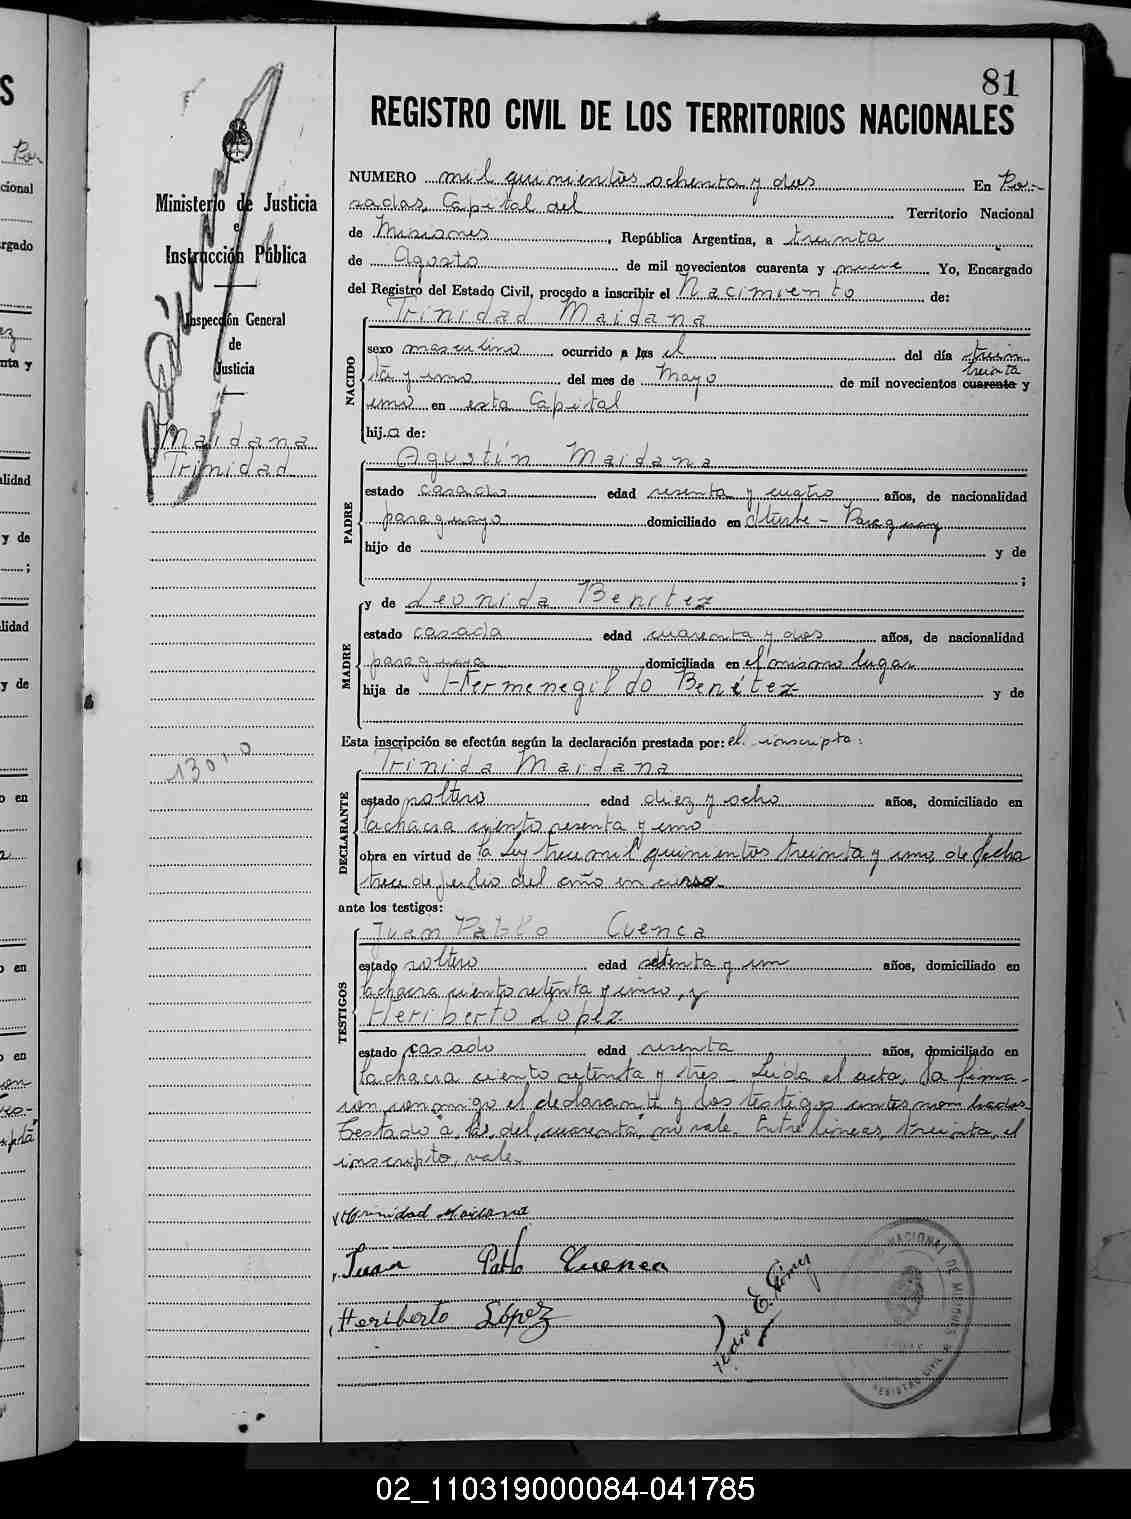 81
REGISTRO CIVIL DE LOS TERRITORIOS NACIONALES
Ministerio de Justicia
e
Instrucción Pública
Inspección General
de
Justicia
Maidana
Trinidad
NUMERO mil quinientos ochenta y dos En Po-
sadas, Capital del Territorio Nacional
de Misiones, República Argentina, a treinta
de Agosto de mil novecientos cuarenta y nueve Yo, Encargado
del Registro del Estado Civil, procedo a inscribir el Nacimiento de:
Trinidad Maidana
NACIDO
sexo masculino ocurrido a las el del día trein
treinta
ta y uno del mes de Mayo de mil novecientos cuarenta y
uno en esta Capital
hij.o de:
Agustín Maidana
PADRE
estado casado edad sesenta y cuatro años, de nacionalidad
paraguayo domiciliado en - Paraguay
hijo de y de
;
y de Leonida Benitez
MADRE
estado casada edad cuarenta y dos años, de nacionalidad
paraguaya domiciliada en el mismo lugar
hija de Hermenegildo Benítez y de
Esta inscripción se efectúa según la declaración prestada por: el inscripto:
Trinida Maidana
DECLARANTE
estado soltero edad diez y ocho años, domiciliado en
la chacra ciento sesenta y uno
obra en virtud de la Ley trece mil quinientos treinta y uno de fecha
trece de julio del año en curso.
ante los testigos:
Juan Pablo Cuenca
TESTIGOS
estado soltero edad setenta y un años, domiciliado en
la chacra ciento setenta y uno, y
Heriberto Lopez
estado casado edad sesenta años, domiciliado en
la chacra ciento setenta y tres - Leída el acta, la firma-
ron conmigo el declarante y dos testigos antes nombrados.
Testado "a, las, del, cuarenta", no vale. Entre líneas, treinta, el
inscripto, vale.
Trinidad Maidana
Juan Pablo Cuenca
Heriberto López
Pedro E. Gómez
REGISTRO CIVIL
NACIONAL DE MISIONES
13010
02_110319000084-041785